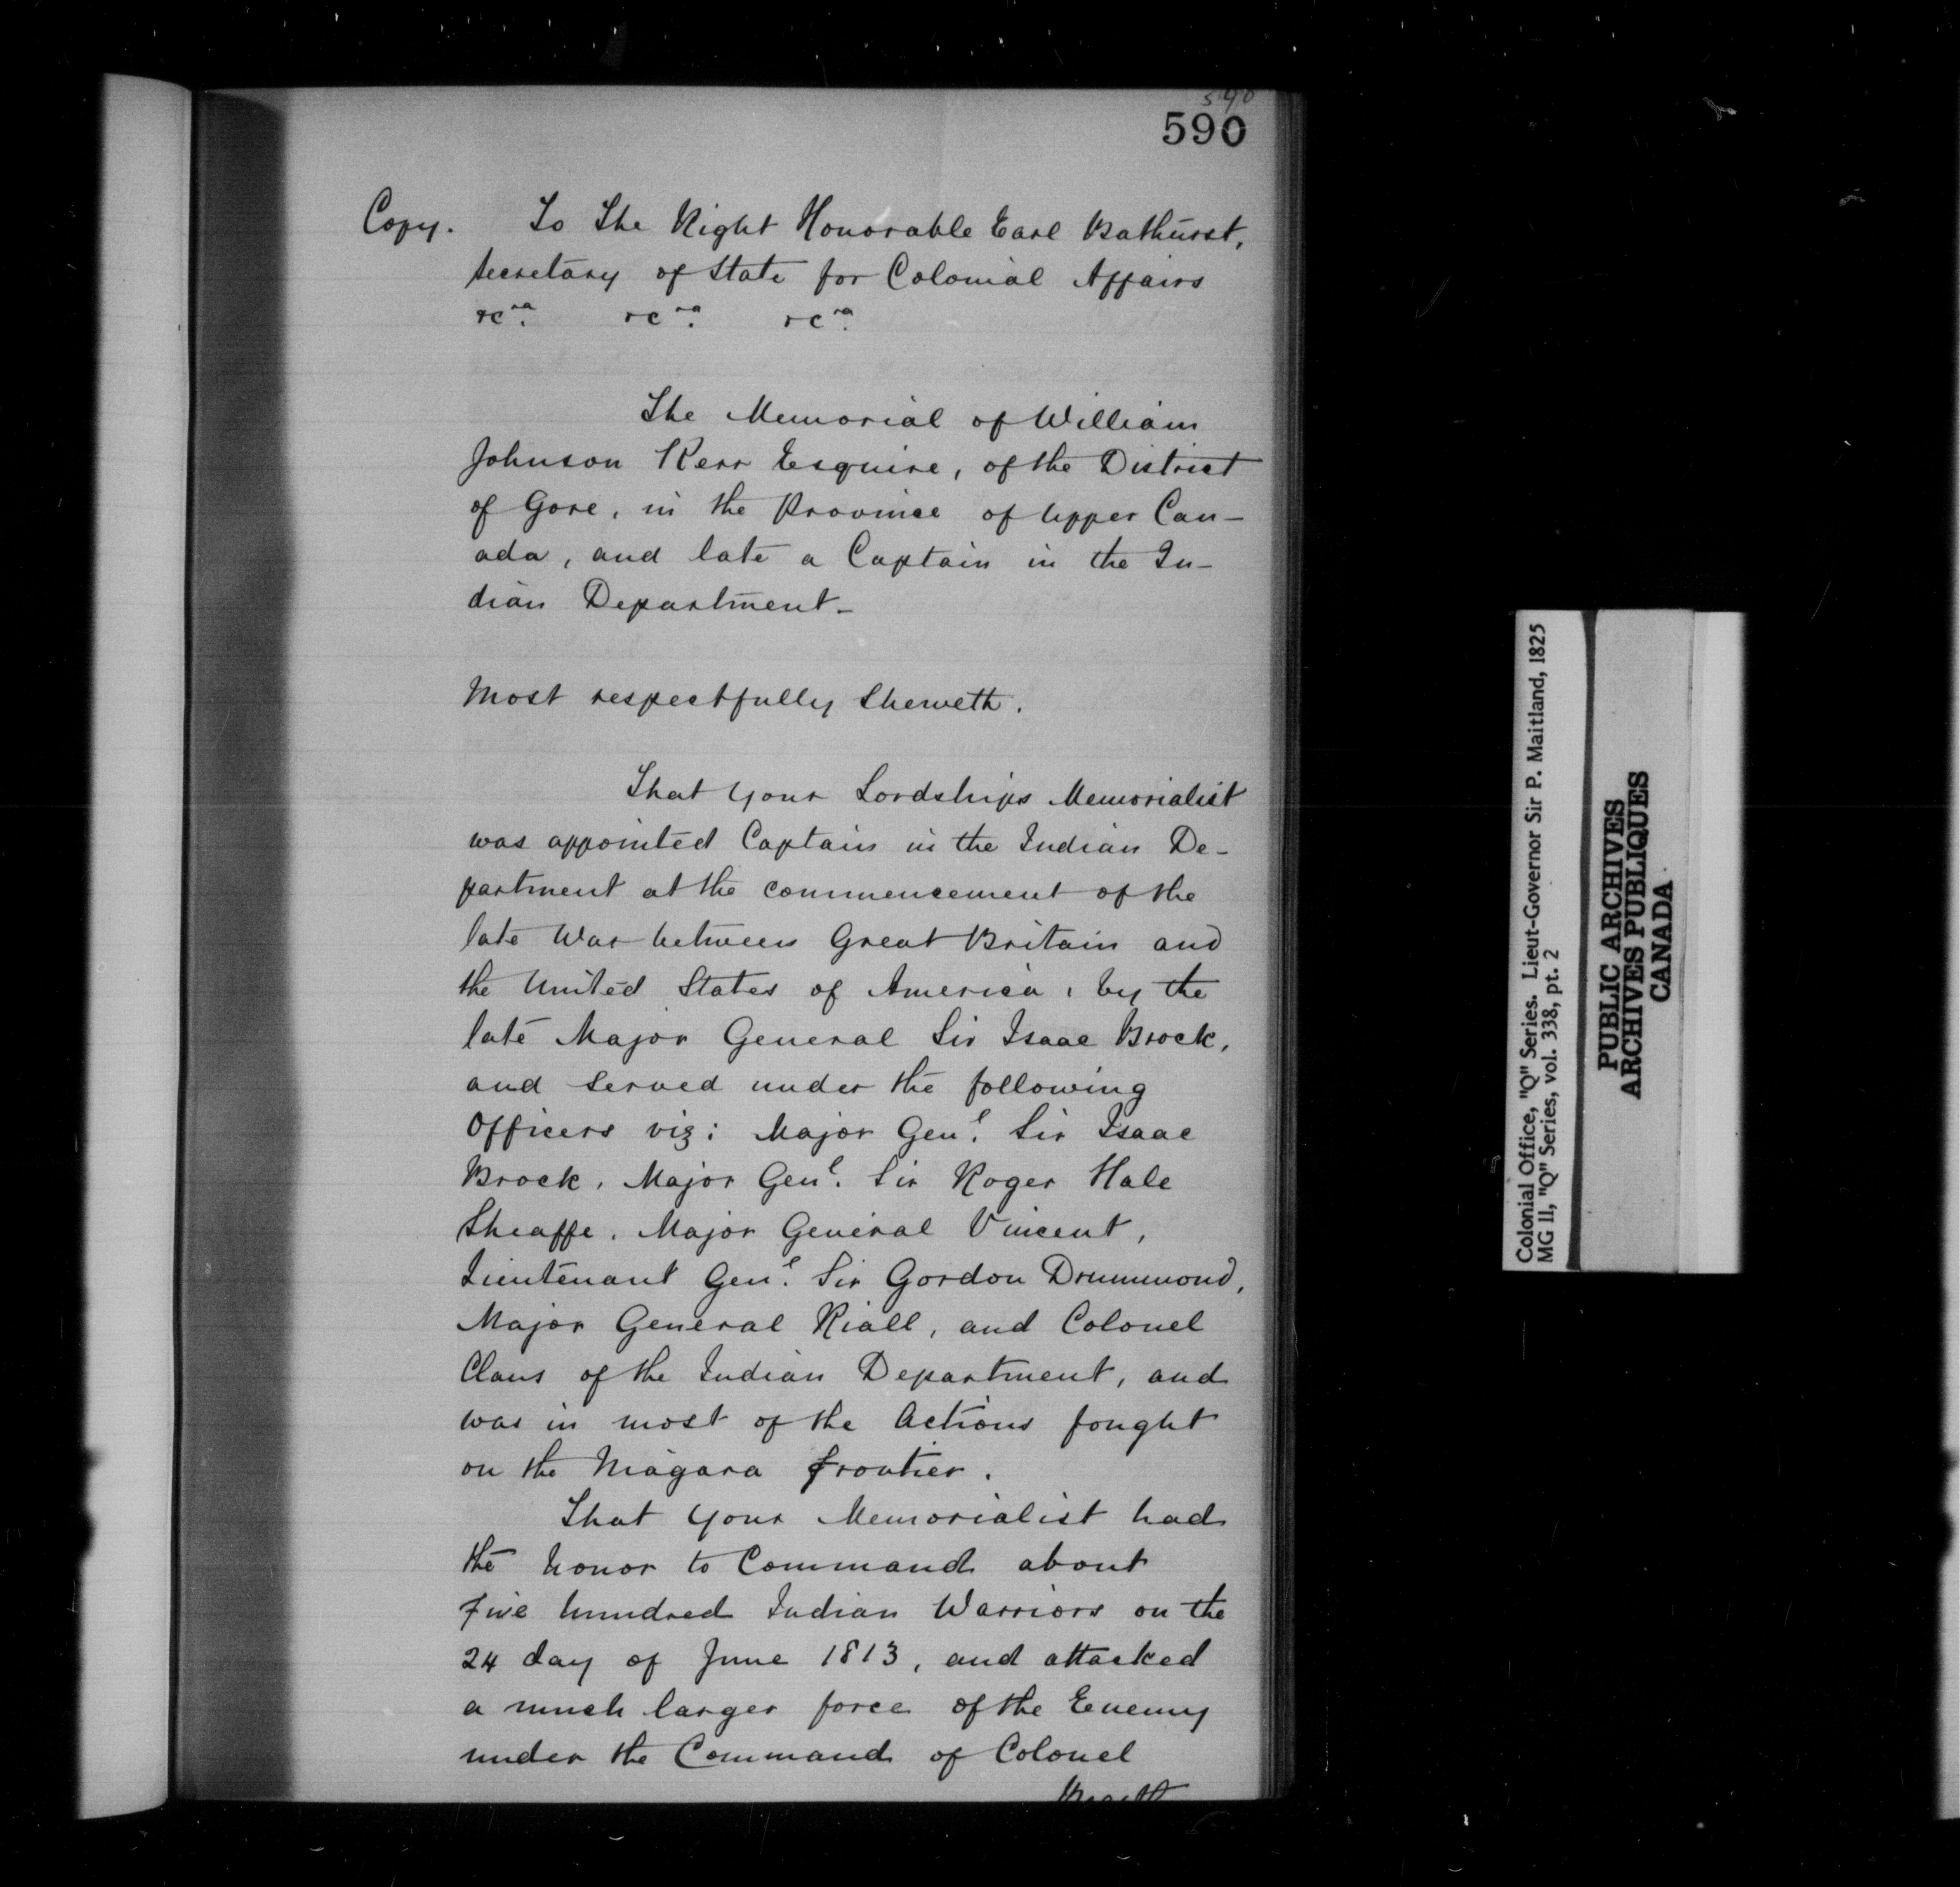 590
590
Copy. To The Right Honorable Earl Bathurst,
Secretary of State for Colonial Affairs
&c.ra &c.ra &c.ra
The Memorial of William
Johnson Kerr Esquire, of the District
of Gore, in the Province of Upper Can-
ada, and late a Captain in the In-
dian Department-
Most respectfully Sheweth.
That your Lordships Memorialist
was appointed Captain in the Indian De-
partment at the commencement of the
late War between Great Britain and
the United States of America, by the
late Major General Sir Isaac Brock,
and served under the following
Officers viz: Major Gen.l Sir Isaac
Brock, Major Gen.l Sir Roger Hale
Sheaffe, Major General Vincent,
Lieutenant Gen.l Sir Gordon Drummond,
Major General Riall, and Colonel
Claus of the Indian Department, and
was in most of the Actions fought
on the Niagara frontier.
That your Memorialist had
the honor to Command about
five hundred Indian Warriors on the
24 day of June 1813, and attacked
a much larger force of the Enemy
under the Command of Colonel
Colonial Office, "Q" Series. Lieut-Governor Sir P. Maitland, 1825
MG 11, "Q" Series, vol. 338, pt. 2
PUBLIC ARCHIVES
ARCHIVES PUBLIQUES
CANADA